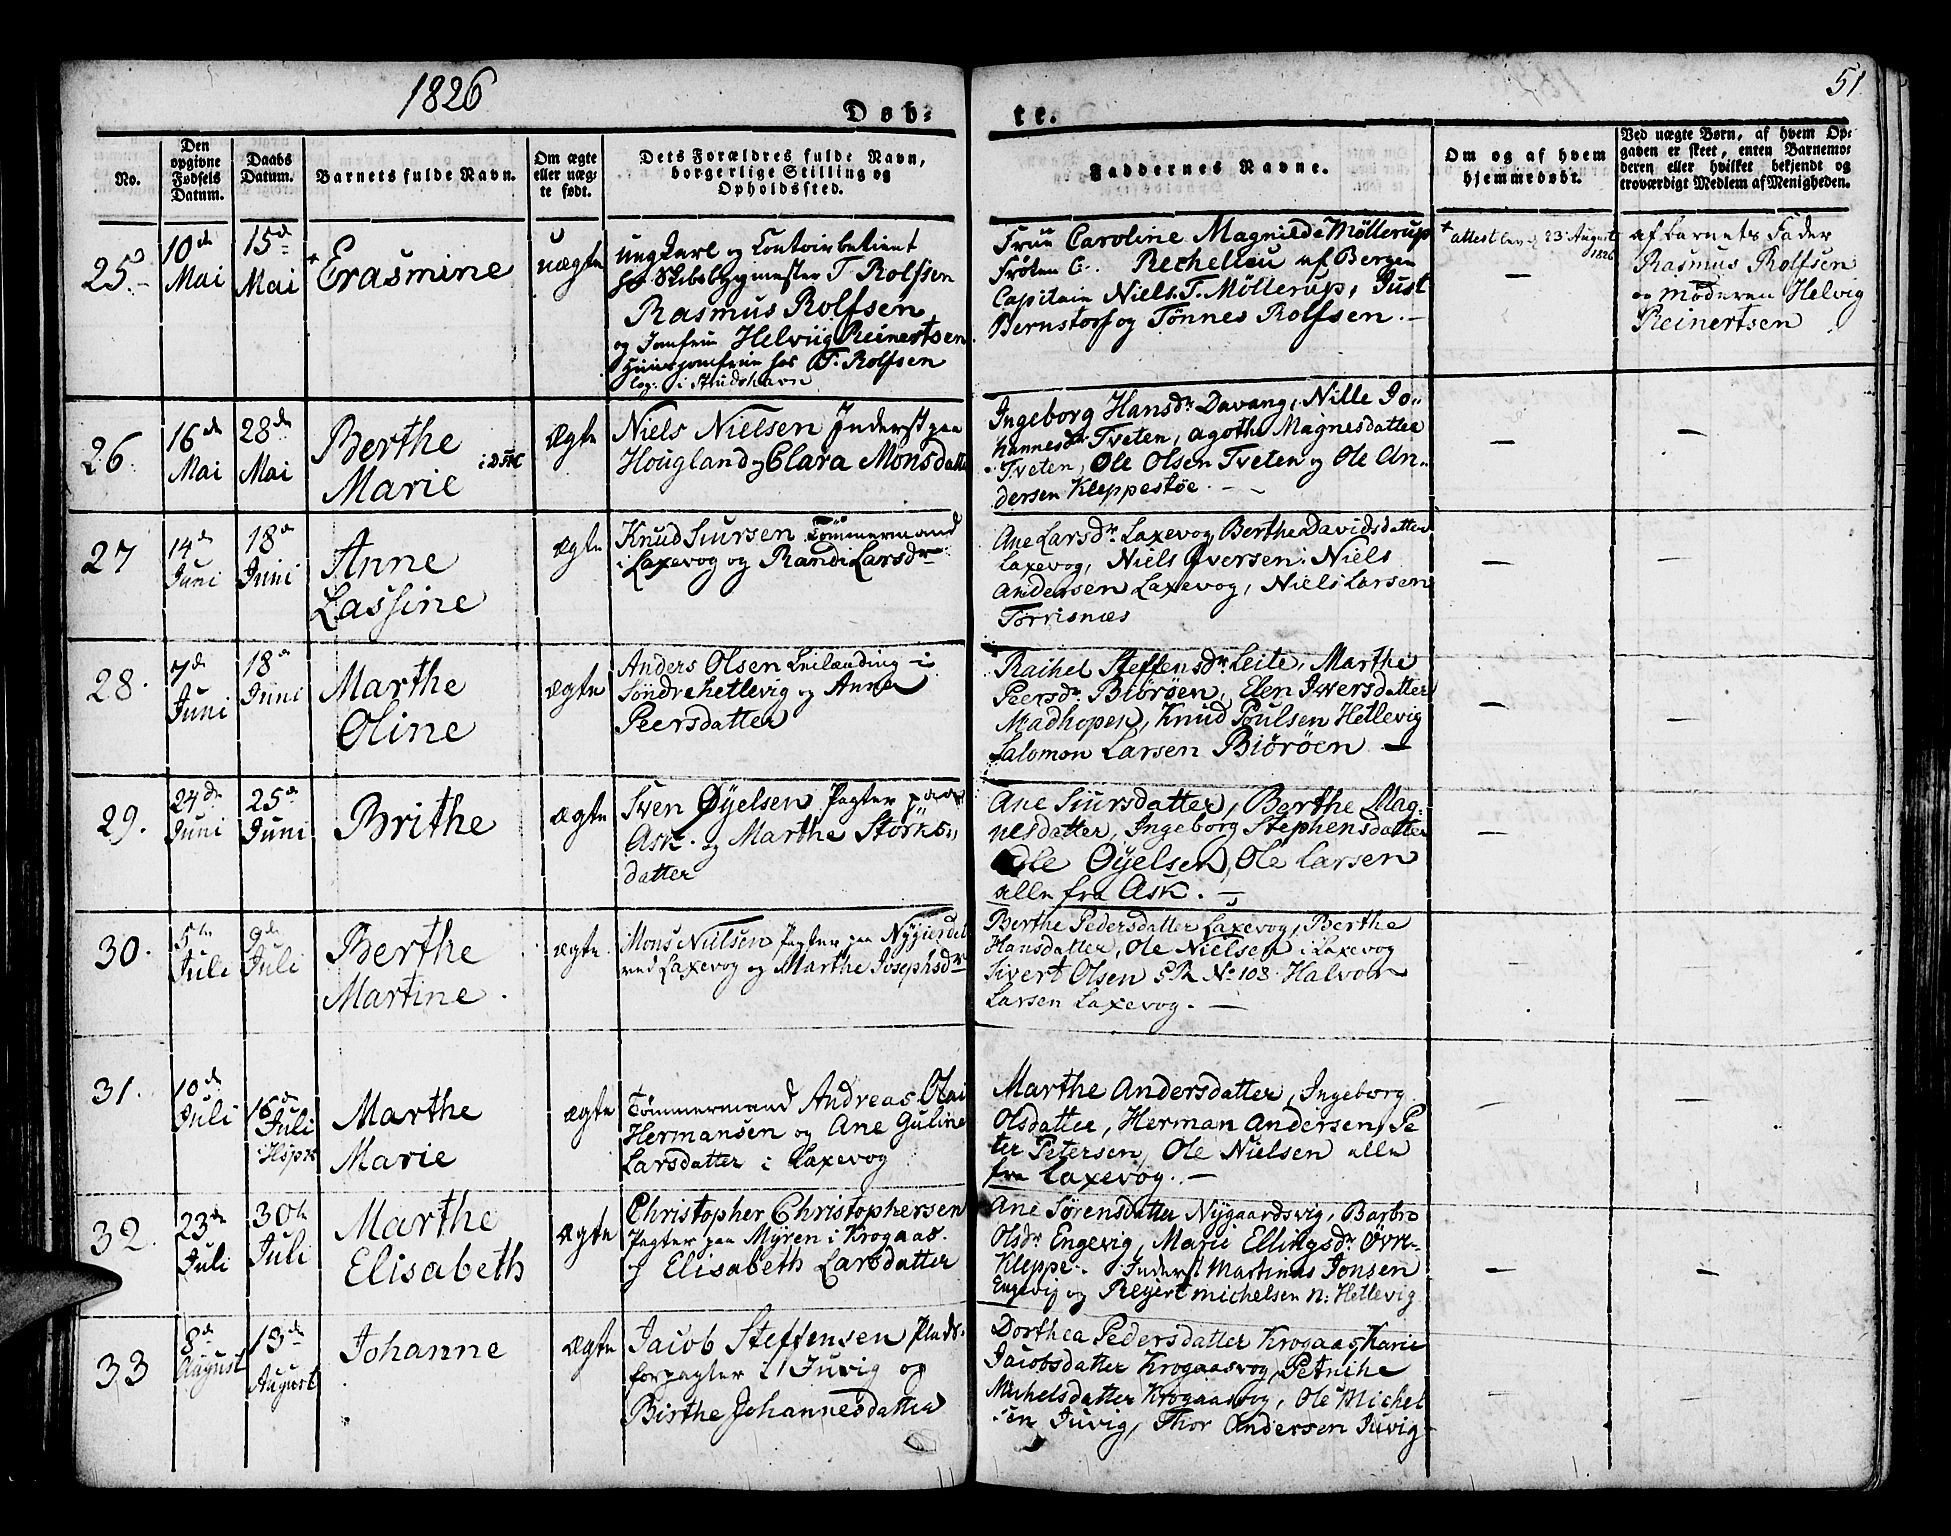 1826
51
Døb-
te.
No.
Den opgivne Fødsels Datum.
Daabs Datum.
Barnets fulde Navn.
Om ægte eller uæg- te født.
Dets Forældres fulde Navn, borgerlige Stilling og Opholdssted.
Faddernes Navne.
Om og af hvem hjemmedøbt.
Ved uægte Børn, af hvem Op- gaven er skeet, enten Barnemo- deren eller hvilket bekjendt og troværdigt Medlem af Menigheden.
25.
10de Mai
15de Mai
+ Erasmine
uægte
ungkarl og Contoirbetient
hos Skibsbygmester T. Rolfsen
Rasmus Rolfsen
og Jomfrue Helviig Reinertsen
Huusjomfrue hos T. Rolfsen
i Strudshavn
Frue Caroline Magnilde Möllerup
Frøken C. Rechelieu af Bergen
Capitain Niels. T. Möllerup, Just
Bernstorf og Tönnes Rolfsen.
+ attest lev. 23 August 1826
—
af Barnets Fader
Rasmus Rolfsen
og Moderen Helvig
Reinertsen
26
16de Mai
28de Mai
Berthe
Marie
Ægte
Niels Nielsen Inderst paa
Hougland og Clara Monsdatter
Ingeborg Hansdr Davang, Nille Jo-
hannesdr Tveten, Agothe Magnesdatter
Tveten, Ole Olsen Tveten og Ole An-
dersen Kleppestøe.
—
—
27
14de Juni
18de Juni
Anne
Lassine
Ægte
Knud Siursen Tömmermand
i Laxevog og Randi Larsdr
Ane Larsdr Laxevog, Berthe Davidsdatter
Laxevog, Niels Iversen, Niels
Andersen Laxevog, Niels Larsen
Torrisnæs
—
—
28.
7de Juni
18de Juni
Marthe
Oline
Ægte
Anders Olsen Leilænding i
Söndre Hetlevig og Anna
Peersdatter
Rachel Steffensdr Leite, Marthe
Peersdr Biöröen, Elen Iversdatter
Madhopen, Knud Poulsen Hetlevig
Salomon Larsen Biöröen —
—
—
29.
24de Juni
25de Juni
Brithe
Ægte
Sven Øyelsen Pagter paa
Ask. og Marthe Storks-
datter
Ane Siursdatter, Berthe Mag-
nesdatter, Ingeborg Stephensdatter
Ole Øyelsen, Ole Larsen
alle fra Ask.
—
30.
5te Juli
9de Juli
Berthe
Martine.
Ægte.
Mons Nielsen Pagter paa Nygierdet
ved Laxevog og Marthe Josephsdr
Berthe Pedersdatter Laxevog, Berthe
Hansdatter, Ole Nielsen i Laxevog
Sivert Olsen SR No 103 Halvor
Larsen Laxevog. —
—
—
31.
10de Juli
16de Juli
Marthe
Marie
Ægte
Tømmermand Andreas Olai
Hermansen og Ane Guline
Larsdatter i Laxevog
Marthe Andersdatter, Ingeborg
Olsdatter, Herman Andersen, Pe
ter Petersen, Ole Nielsen alle
fra Laxevog. —
—
—
32.
23de Juli
30te Juli
Marthe
Elisabeth
Ægte
Christopher Christophersen
Pagter paa Myren i Krogaas.
og Elisabeth Larsdatter
Ane Sørensdatter Nygaardsvig, Barbro
Olsdr Engevig, Marie Ellingsdr Övre-
Kleppe. Inderst Martinus Jonsen
Engevig og Reyert Michelsen N: Hetlevig
—
—
33
8de August
13de August
Johanne
Ægte
Jacob Steffensen Plads-
forpagter i Juvig og
Birthe Johannesdatter
Dorthea Pedersdatter Krogaas, Karie
Jacobsdatter Krogaasvog, Petniche
Michelsdatter Krogaasvog, Ole Michel
sen Juvig, Thor Andersen Juvig
—
—